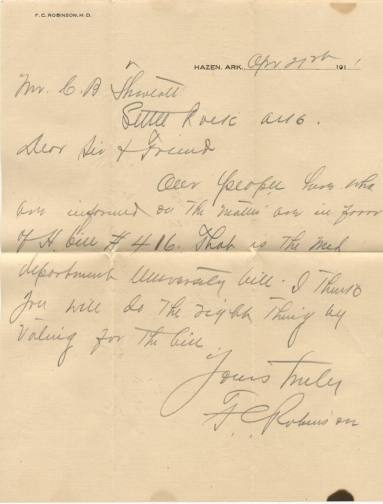 F. C. ROBINSON, M. D.
HAZEN, ARK. Apr 21st 1911
Mr. C. B. Thweatt
Little Rock Ark.
Dear Sir & Friend
Our people here who
are informed on the matter are in favor
of H bill # 416. That is the Med
department University bill. I think
you will do the right thing by
voting for the bill
Yours truly
F. C. Robinson